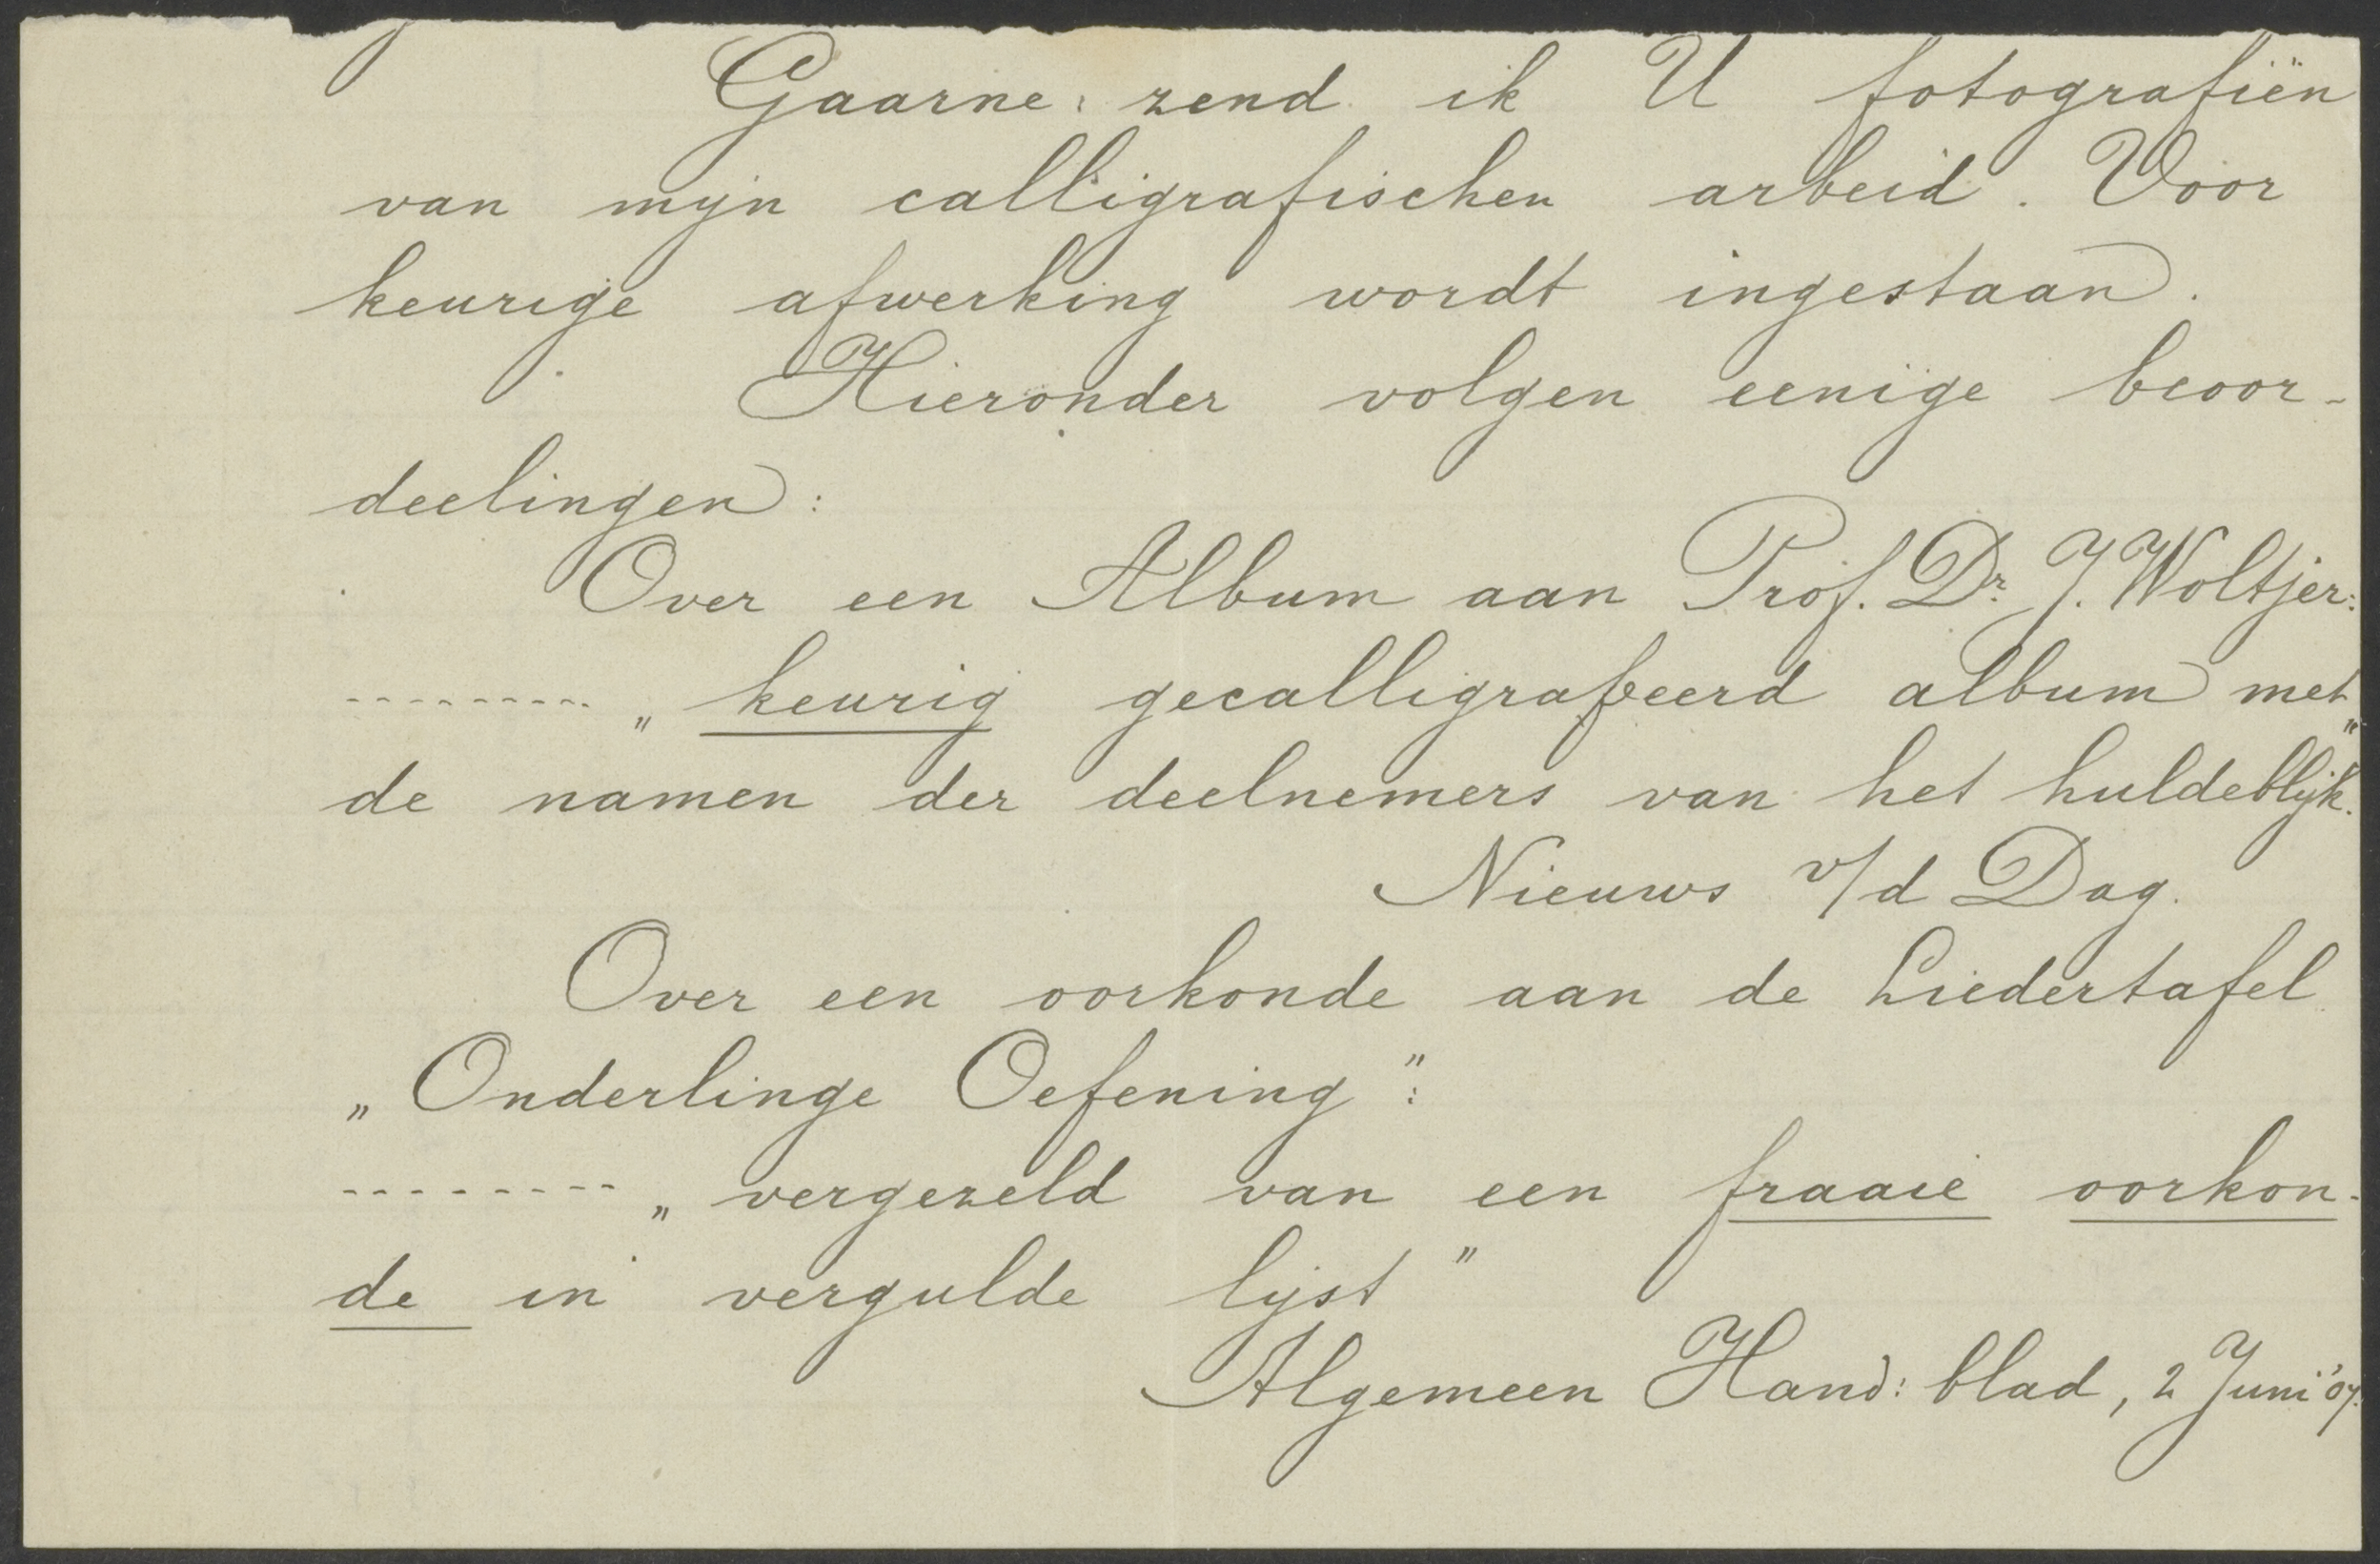 Gaarne zend ik U fotografiën
van mijn calligrafischen arbeid. Voor
keurige afwerking wordt ingestaan.
Hieronder volgen eenige beoor-
deelingen:
Over een Album aan Prof. Dr. J. Woltjer:
--------- „keurig gecalligrafeerd album met
de namen der deelnemers van het huldeblijk."
Nieuws v/d Dag.
Over een oorkonde aan de Liedertafel
„Onderlinge Oefening":
--------- „vergezeld van een fraaie oorkon-
de in vergulde lijst"
Algemeen Hand: blad, 2 Juni '07.